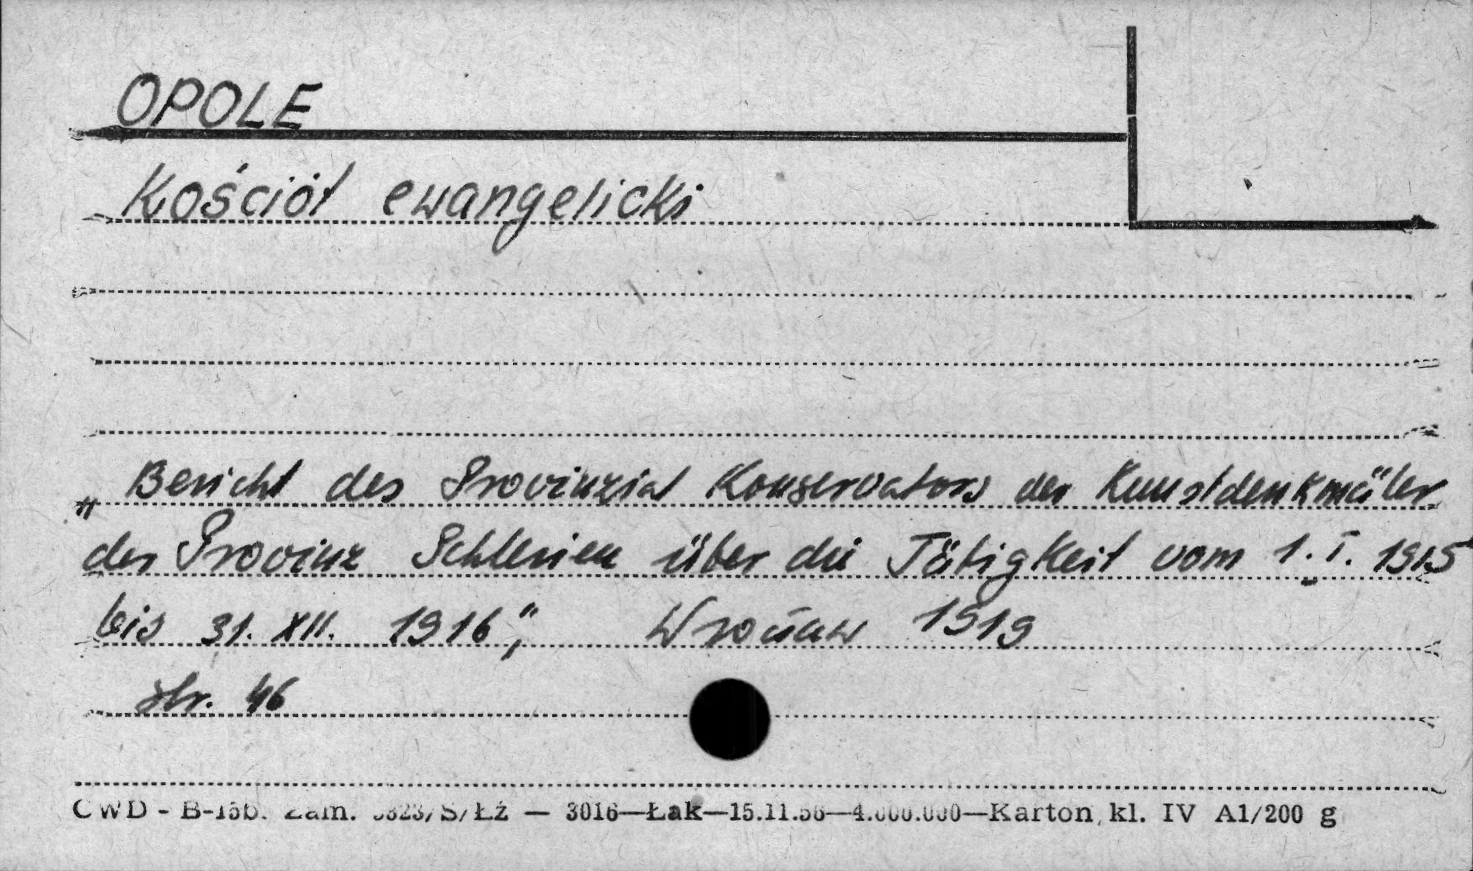 OPOLE
Kościół ewangelicki
„Bericht des Provinzial Konservators der Kunstdenkmäler
der Provinz Schlesien über die Tätigkeit vom 1.I. 1915
bis 31. XII. 1916", Wrocław 1919
str. 46
CWD - B-15b. Zam. 5823/S/Łź — 3016—Łak—15.11.56—4.000.000—Karton kl. IV A1/200 g